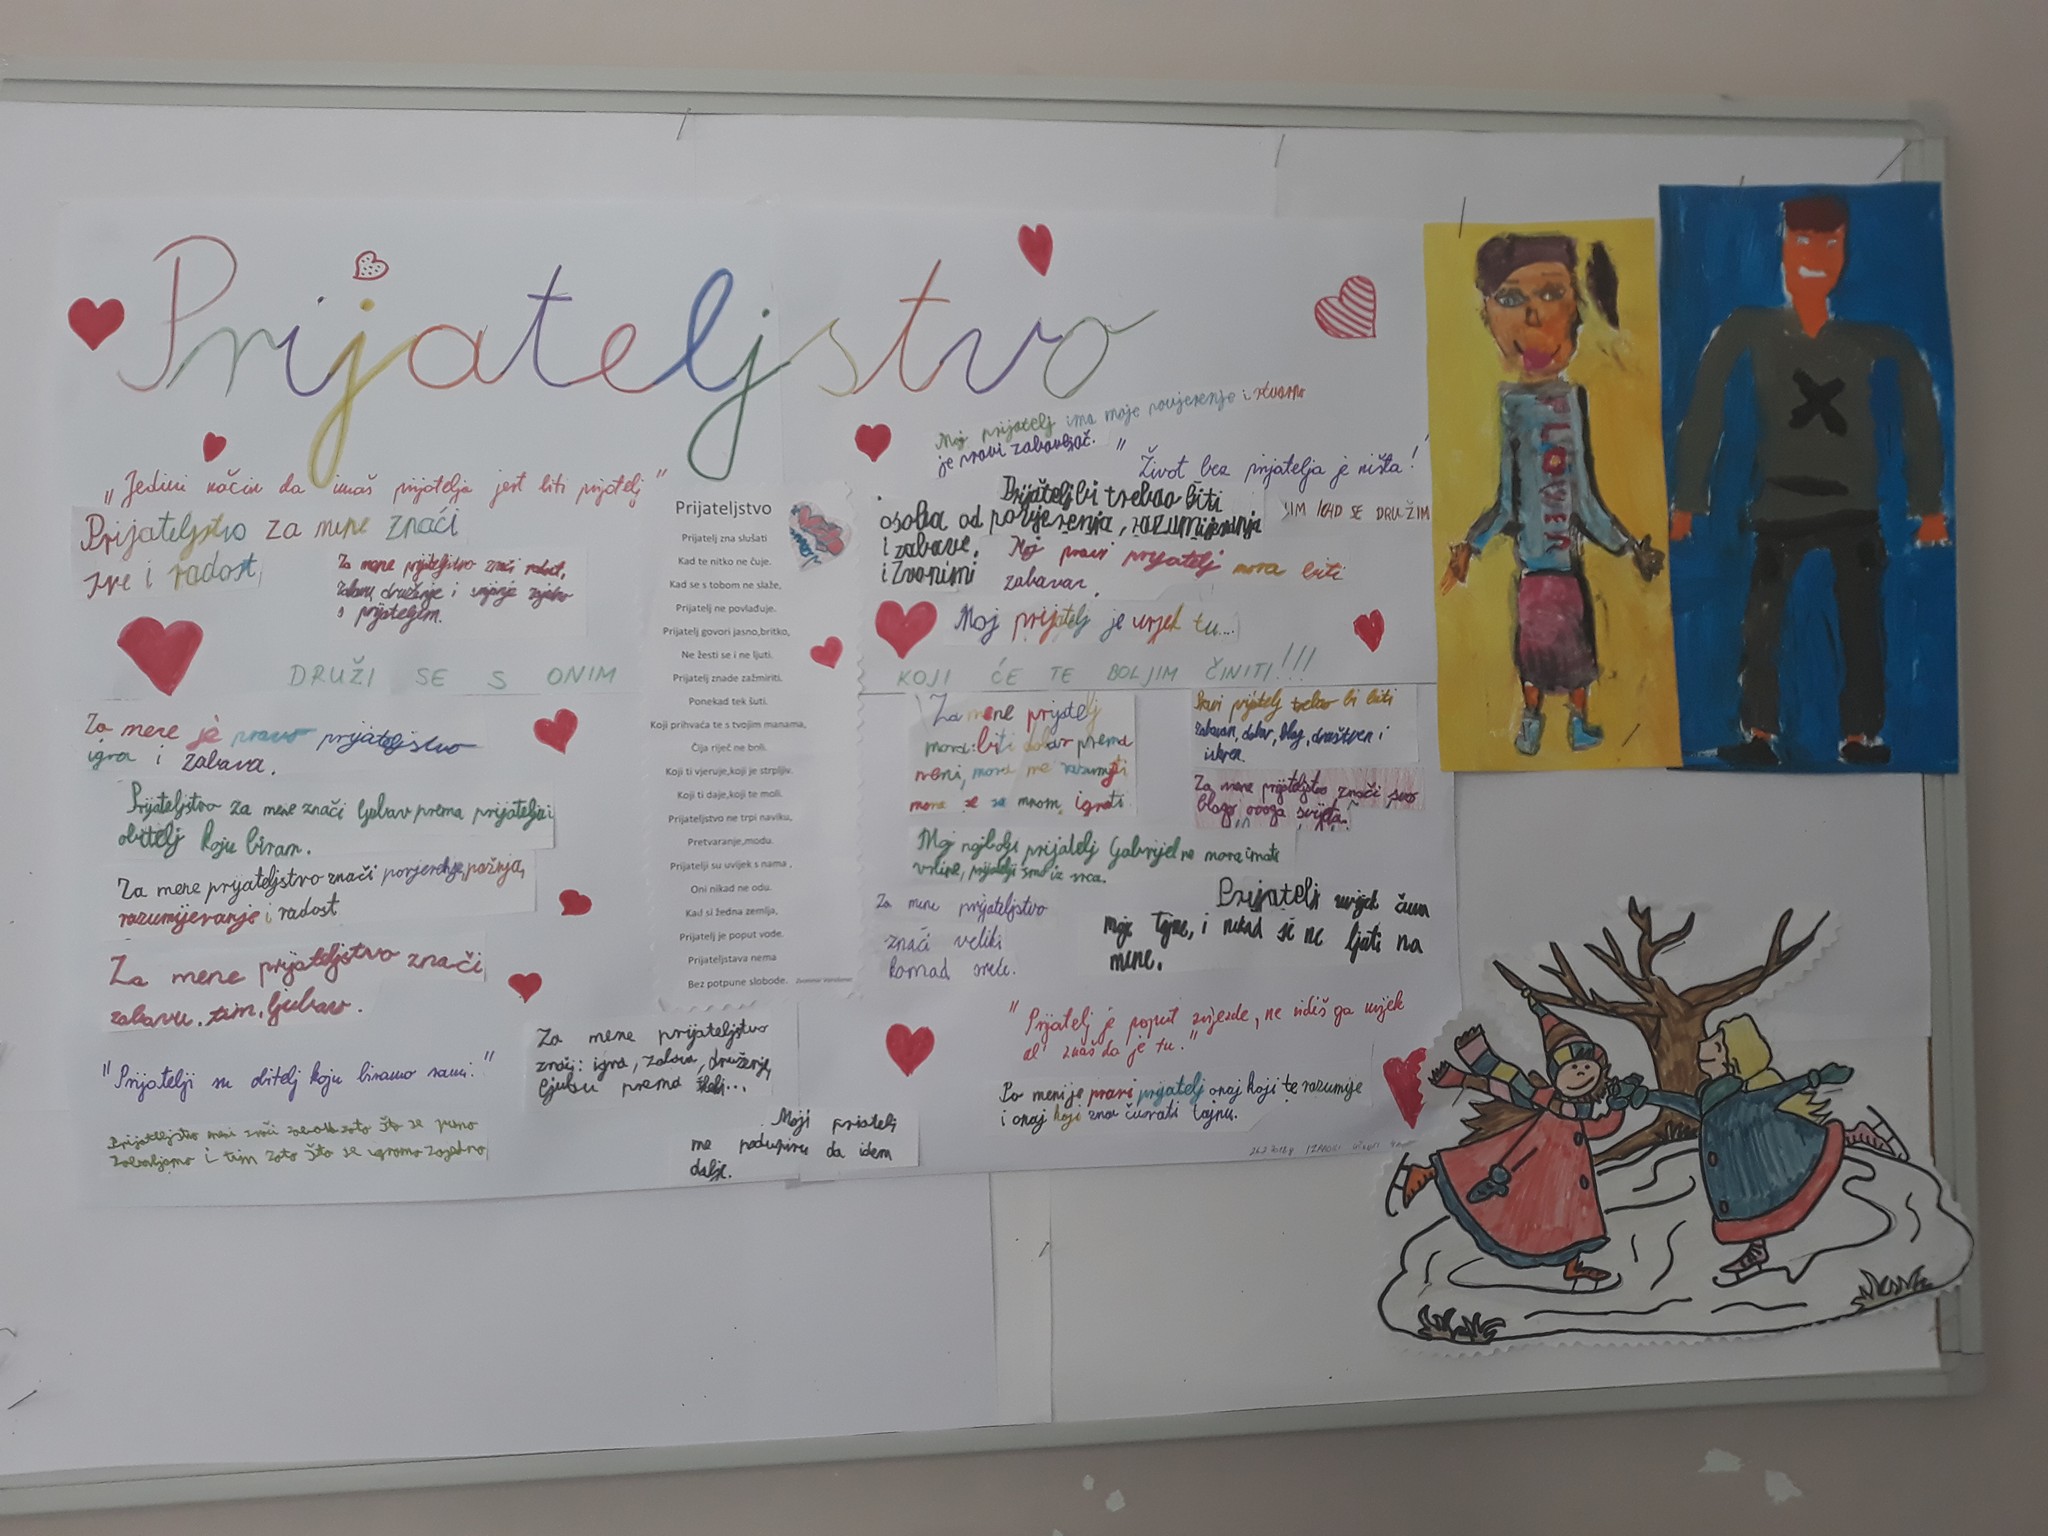 Prijateljstvo
"Jedini način da imaš prijatelja jest biti prijatelj"
Prijateljstvo za mene znaći
sve i radost,
Za mene prijateljstvo znači radost,
zabavu, druženje i
s prijateljem.
DRUŽI SE S ONIM
Za mene je pravo prijateljstvo
igra i zabava.
Prijateljstvo za mene znači ljubav prema prijatelju i
obitelj koju biram.
Za mene prijateljstvo znači povjerenje, pažnja,
razumijevanje i radost
Za mene prijateljstvo znači
zabavu, tim, ljubav.
"Prijatelji su obitelj koju biramo sami."
Prijateljstvo meni znači zato što se puno
zabavljamo i tim zato što se igramo zajedno
Prijateljstvo
Prijatelj zna slušati
Kad te nitko ne čuje.
Kad se s tobom ne slaže,
Prijatelj ne povlađuje.
Prijatelj govori jasno,britko,
Ne žesti se i ne ljuti.
Prijatelj znade zažmiriti.
Ponekad tek šuti.
Koji prihvaća te s tvojim manama,
Čija riječ ne boli.
Koji ti vjeruje,koji je strpljiv.
Koji ti daje,koji te moli.
Prijateljstvo ne trpi naviku,
Pretvaranje,modu.
Prijatelji su uvijek s nama ,
Oni nikad ne odu.
Kad si žedna zemlja,
Prijatelj je poput vode.
Prijateljstava nema
Bez potpune slobode.
Za mene prijateljstvo
znači: igra, zabava, druženje,
ljubav prema
Moji prijatelji
me podupiru da idem
dalje.
Moj prijatelj ima moje povjerenje i stvarno
je pravi zabavljač.
"Život bez prijatelja je ništa!"
Prijatelj bi trebao biti
osoba od povjerenja, razumijevanja
i zabave.
i Zvonimi
IM KAD SE DRUŽIM
Moj pravi prijatelj mora biti
zabavan.
Moj prijatelj je uvjek tu....
KOJI ĆE TE BOLJIM ČINITI!!!
Za mene prijatelj
mora biti dobar prema
meni, mora me razumjeti
mora se sa mnom igrati
Pravi prijatelj trebao bi biti
zabavan, dobar, blag, društven i
iskren.
Za mene prijateljstvo znači svo
blago ovoga svijeta.
Moj najbolji prijatelj Gabrijel ne mora imati
vrline, prijatelji smo iz srca.
Za mene prijateljstvo
znači veliki
komad sreće.
Prijatelj uvijek čuva
moje tajne, i nikad se ne ljuti na
mene.
"Prijatelj je poput zvijezde, ne vidiš ga uvijek
al' znaš da je tu."
Po meni je pravi prijatelj onaj koji te razumije
i onaj koji zna čuvati tajnu.
FLOWER
X